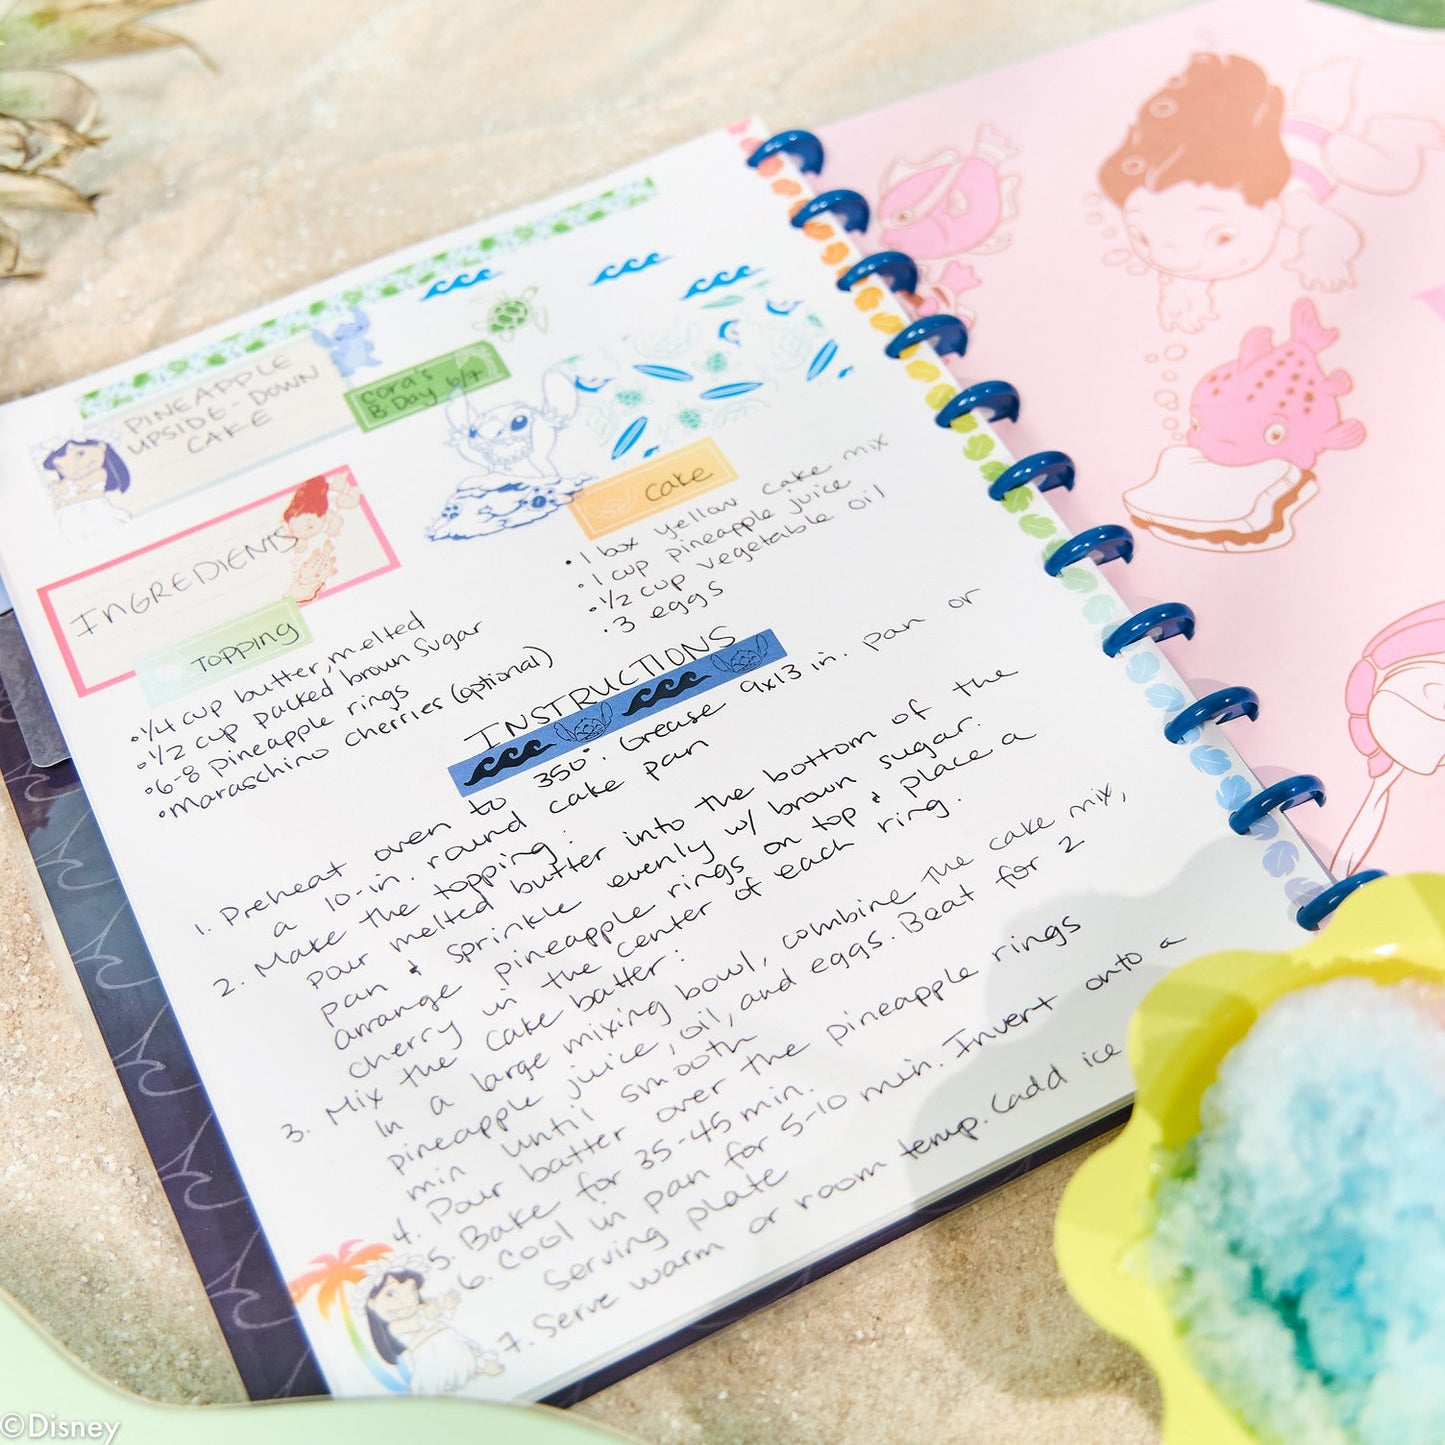 PINEAPPLE
UPSIDE-DOWN
CAKE
Cora's
B Day 6/7
INGREDIENTS
TOPPING
•1/4 cup butter, melted
•1/2 cup packed brown sugar
•6-8 pineapple rings
•maraschino cherries (optional)
cake
•1 box yellow cake mix
•1 cup pineapple juice
•1/2 cup vegetable oil
•3 eggs
INSTRUCTIONS
1. Preheat oven to 350°. Grease 9x13 in. pan or
a 10-in. round cake pan
2. Make the topping:
pour melted butter into the bottom of the
pan & sprinkle evenly w/ brown sugar.
arrange pineapple rings on top & place a
cherry in the center of each ring.
3. Mix the cake batter:
In a large mixing bowl, combine the cake mix,
pineapple juice, oil, and eggs. Beat for 2
min until smooth
4. Pour batter over the pineapple rings
5. Bake for 35-45 min.
6. Cool in pan for 5-10 min. Invert onto a
serving plate
7. Serve warm or room temp. (add ice
©Disney